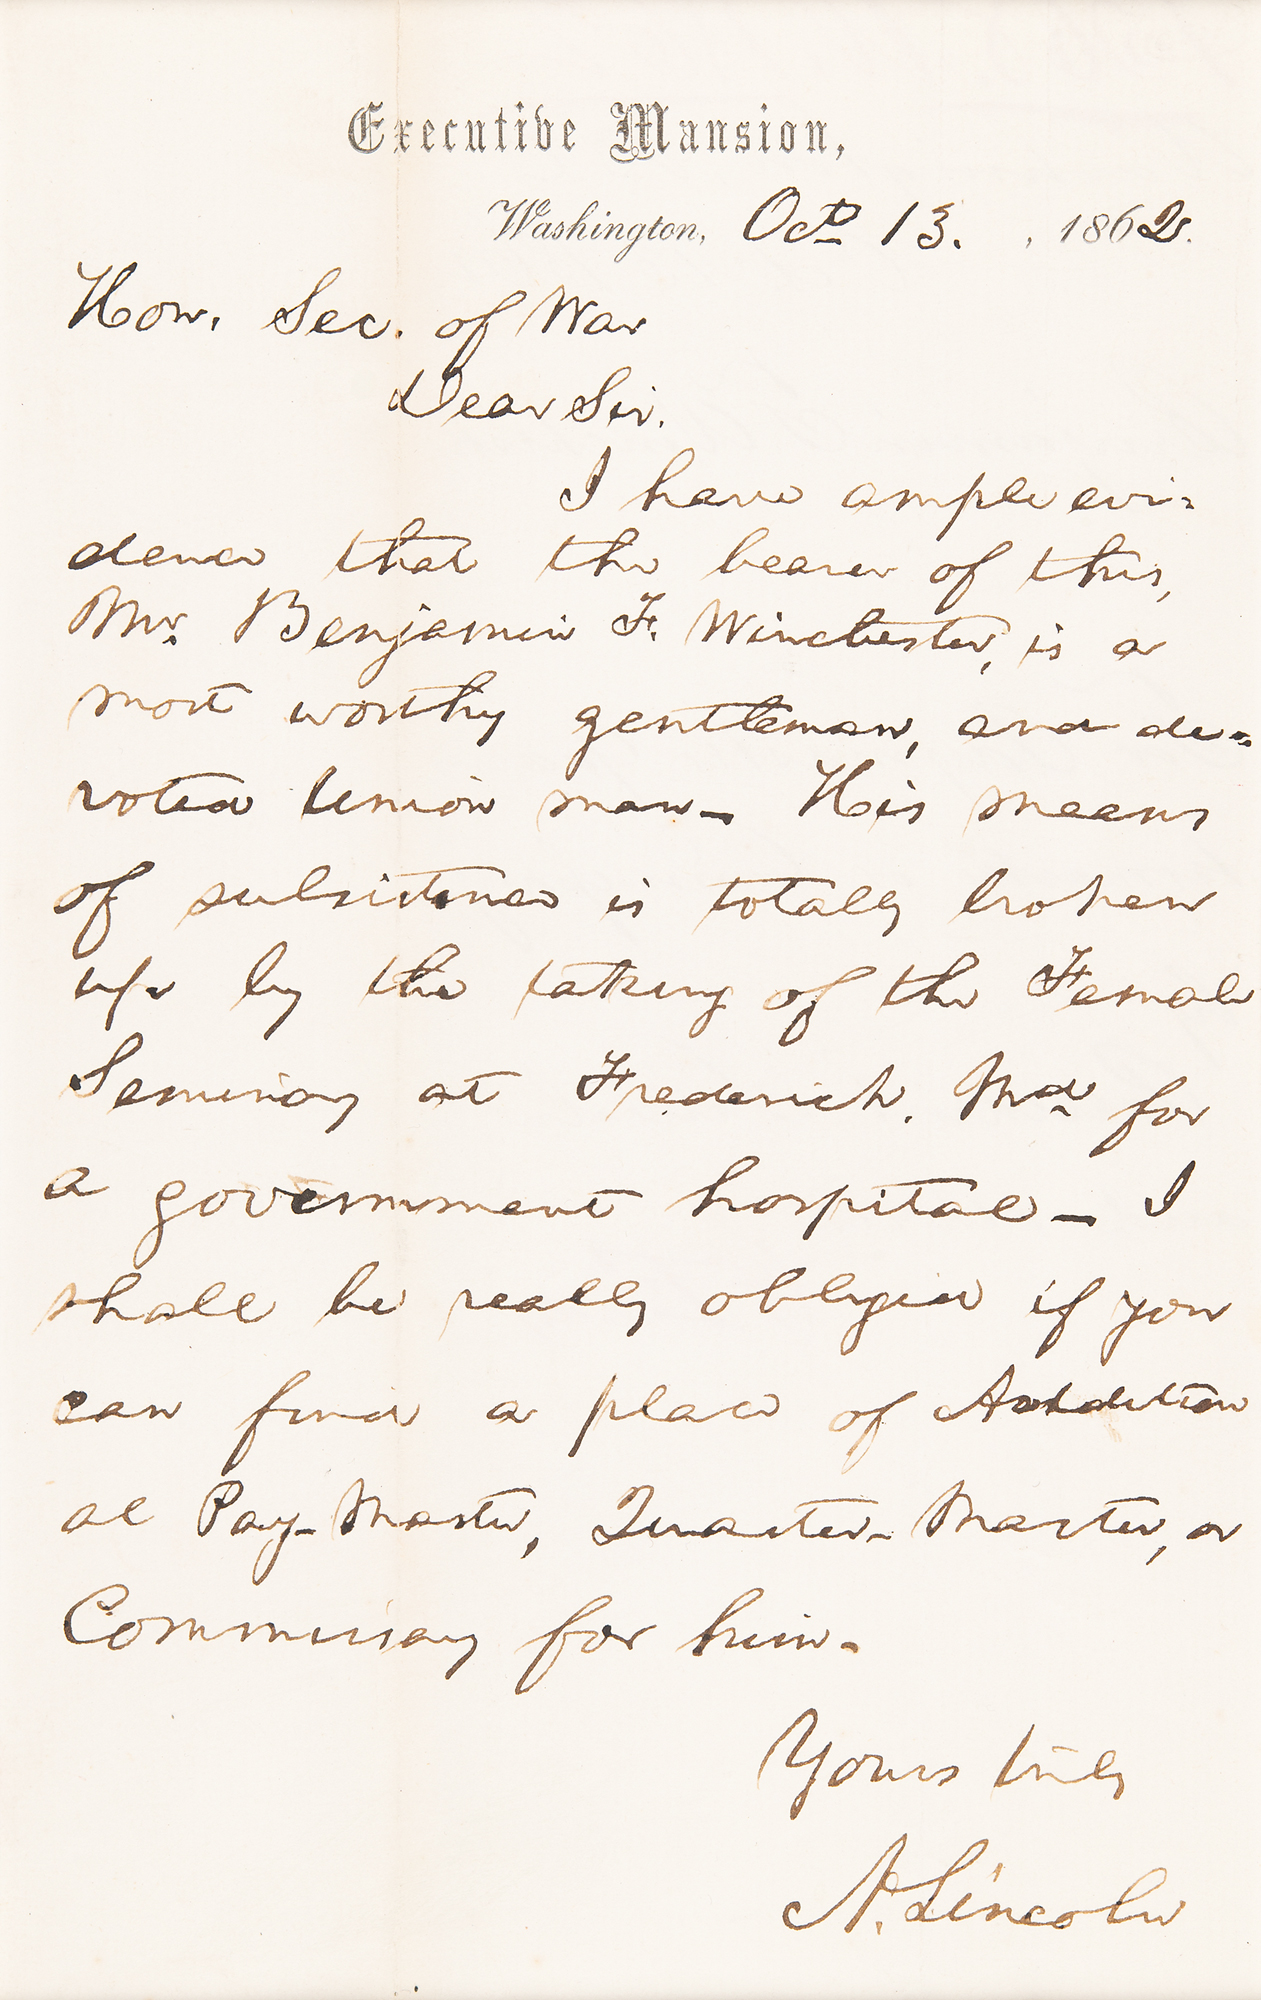 Executive Mansion,
Washington, Oct. 13. , 1862.
Hon. Sec. of War
Dear Sir.
I have ample evi-
dence that the bearer of this,
Mr. Benjamin F. Winchester, is a
most worthy gentleman, and de-
voted Union man— His means
of subsistence is totally broken
up by the taking of the Female
Seminary at Frederick, Md. for
a government hospital— I
shall be really obliged if you
can find a place of Addition
al Pay-Master, Quarter-Master, or
Commissary for him.
Yours truly
A. Lincoln